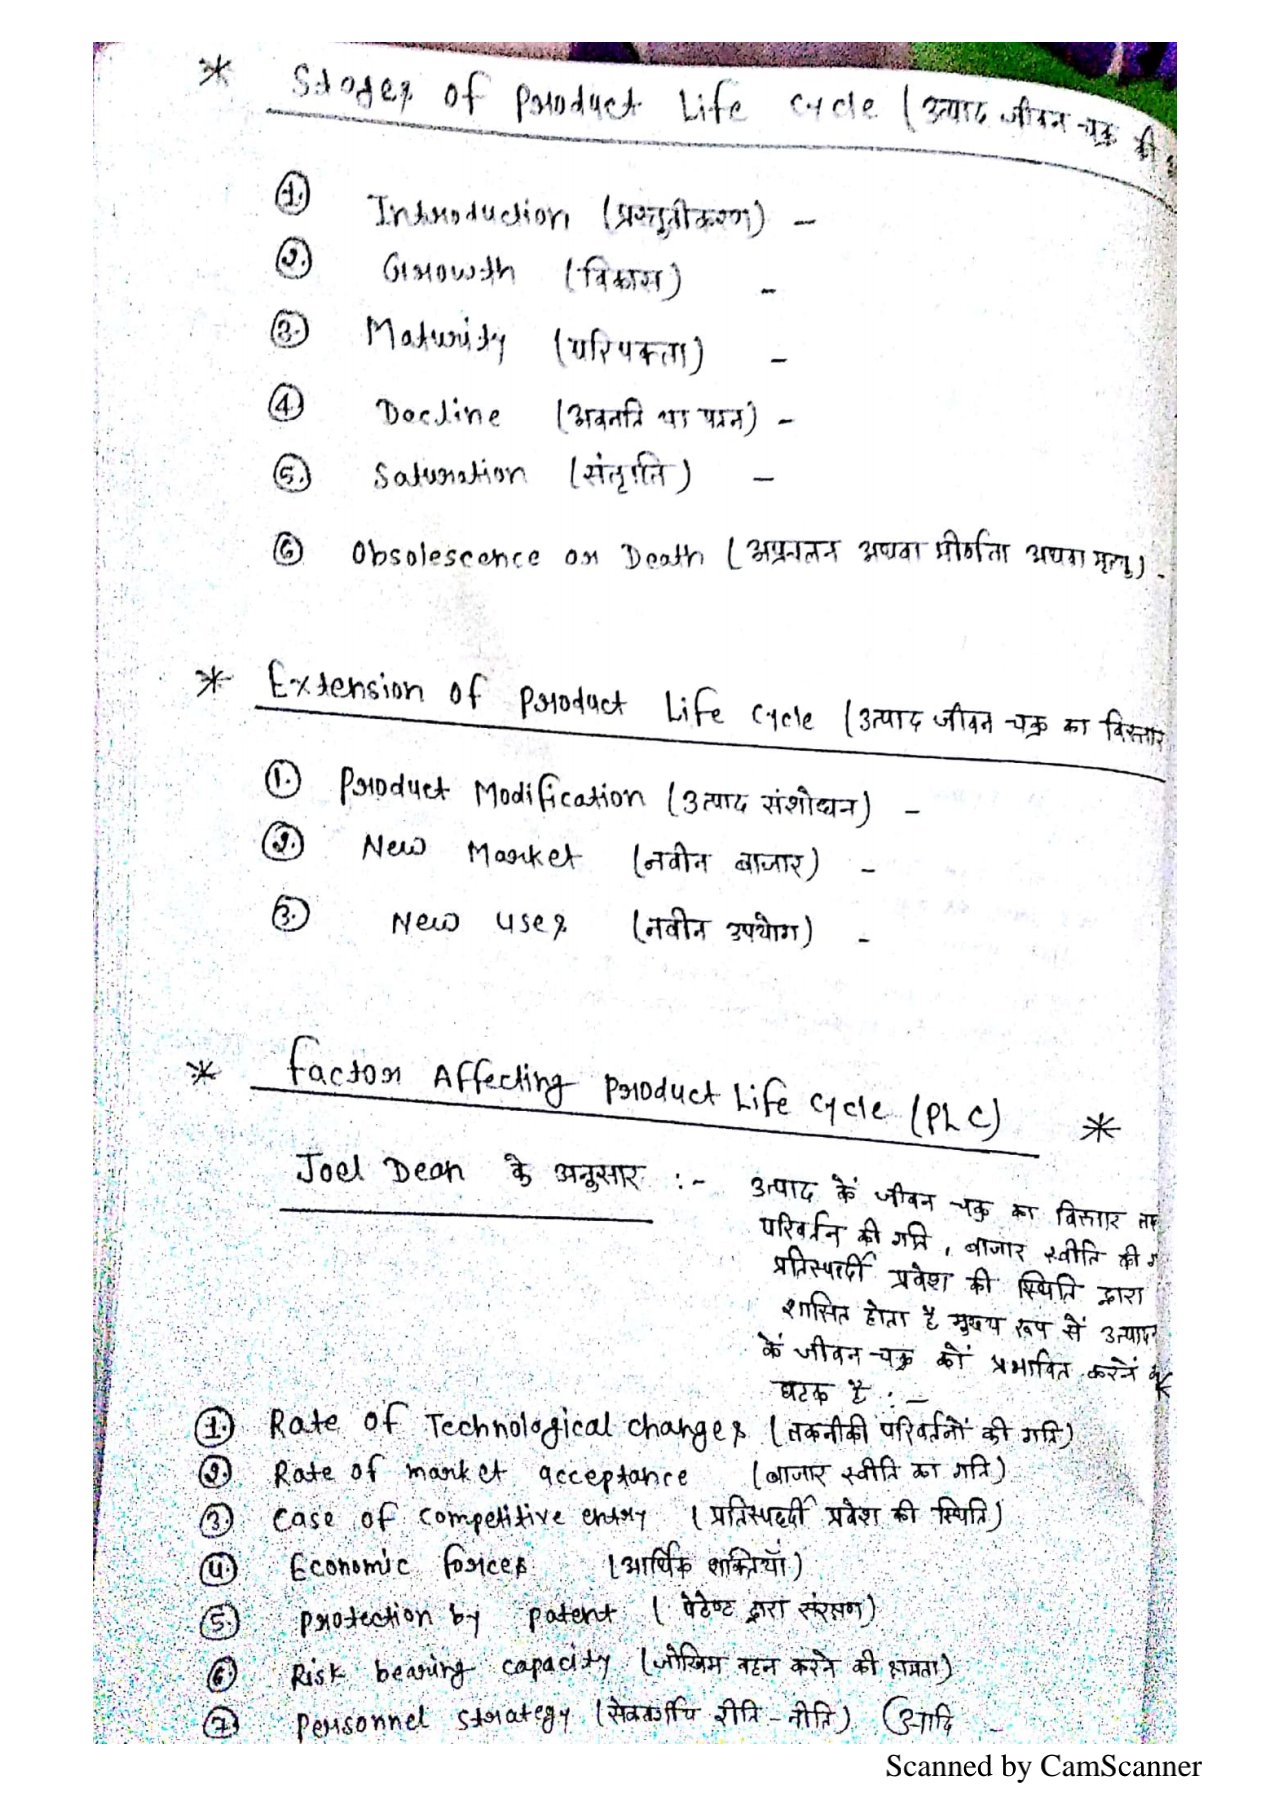 * Stages of Product Life Cycle (उत्पाद जीवन चक्र की
1. Introduction (प्रस्तुतीकरण) -
2. Growth (विकास) -
3. Maturity (परिपक्ता) -
4. Decline (अवनति या पतन) -
5. Saturation (संतृप्ति) -
6 Obsolescence or Death ( अप्रचलन अथवा अथवा मृत्यु) -
* Extension of Product Life Cycle (उत्पाद जीवन चक्र का विस्तार
1. Product Modification (उत्पाद संशोधन) -
2. New Market (नवीन बाजार) -
3. New uses (नवीन उपयोग) -
* Factor Affecting Product Life Cycle (PLC) *
Joel Dean के अनुसार :- उत्पाद कें जीवन चक्र का विस्तार
परिवर्तन की गति, बाजार स्वीति की
प्रतिस्पर्द्दी प्रवेश की स्थिति द्वारा
शासित होता है मुख्य रूप सें उत्पाद
कें जीवन चक्र कों प्रभावित करनें
घटक है :-
1. Rate of Technological changes (तकनीकी परिवर्तनों की गति)
2. Rate of market acceptance (बाजार स्वीति का गति)
3. Case of competitive entry (प्रतिस्पर्द्दी प्रवेश की स्थिति)
4. Economic forces (आर्थिक शक्तियाँ)
5. Protection by patent ( पेटेण्ट द्वारा संरक्षण)
6. Risk bearing capacity (जोखिम वहन करने की क्षमता)
7. Personnel strategy (सेवावर्गीय रीति-नीति) (आदि -
Scanned by CamScanner